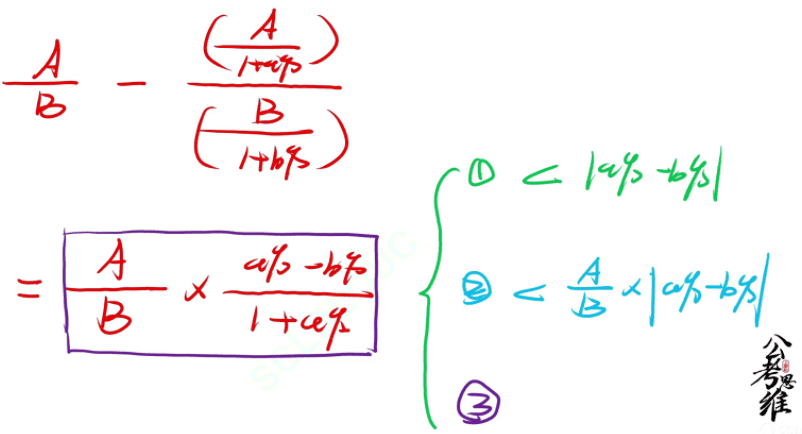 A/B - (A/(1+a%))/(B/(1+b%))
= A/B × (a%-b%)/(1+a%)
① < |a%-b%|
② < A/B × |a%-b%|
③
公考思维